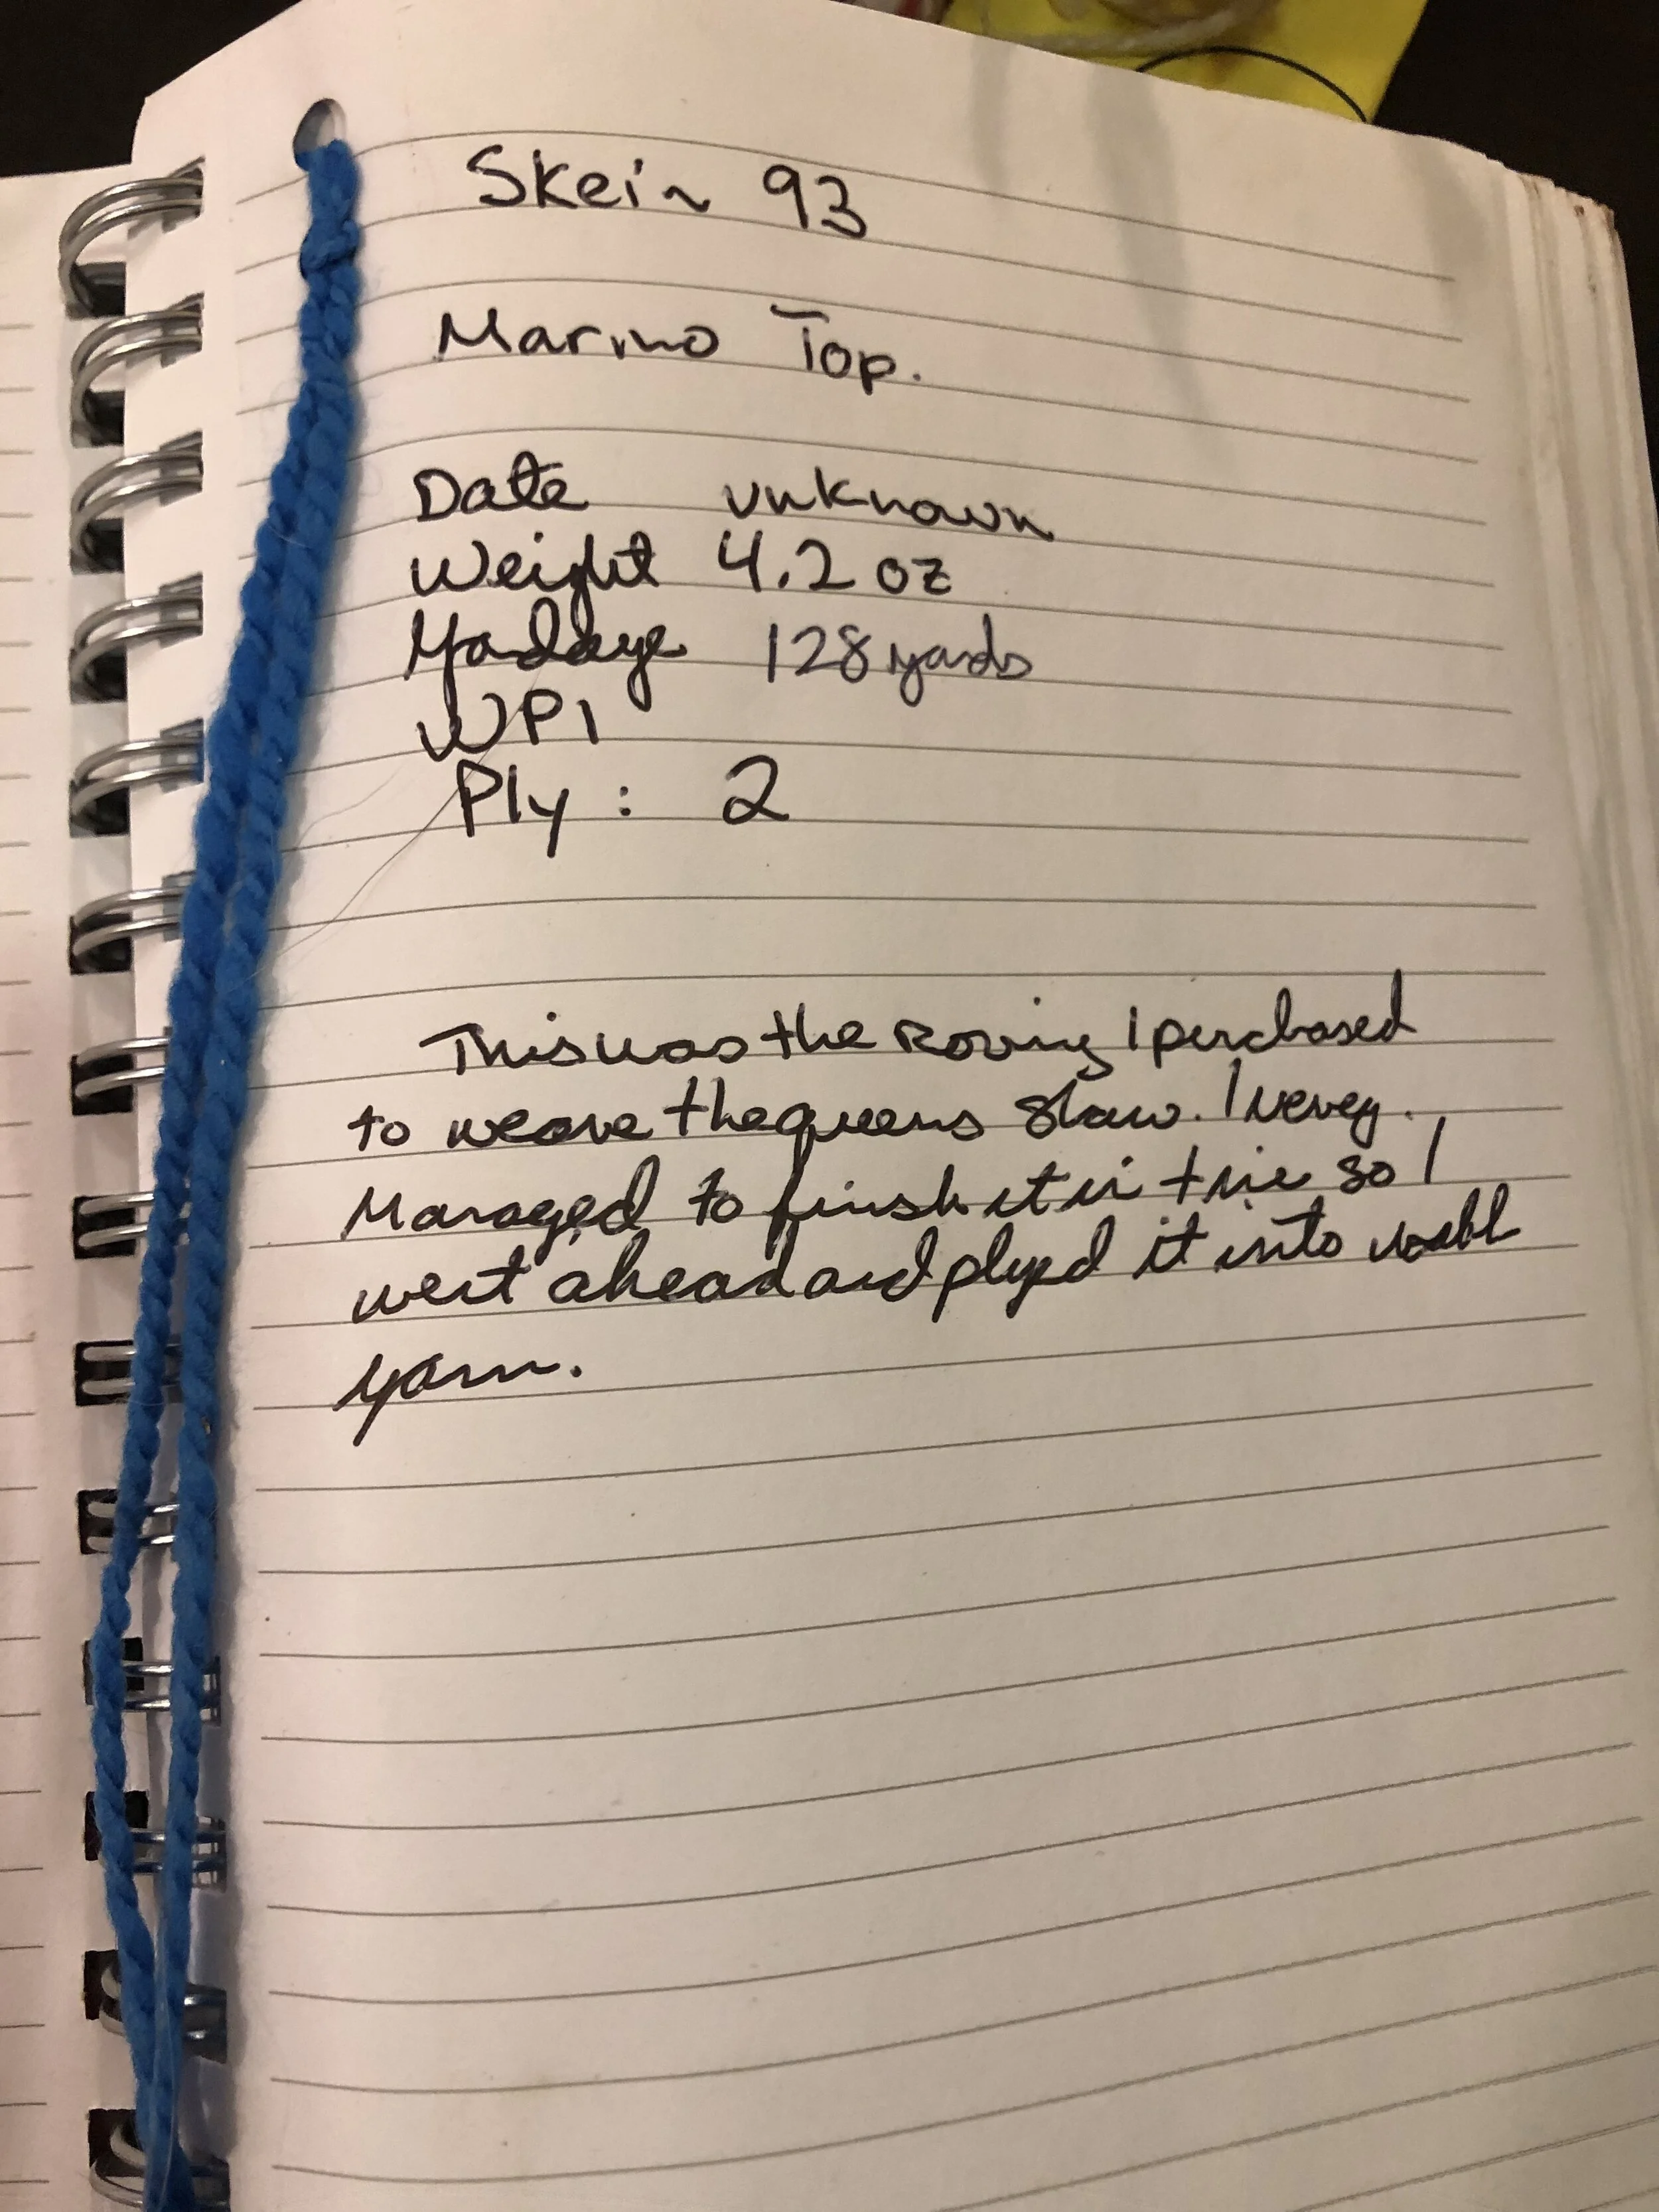 Skein 93
Marino Top.
Date unknown
Weight 4.2 oz
Yardage 128 yards
WPI
Ply: 2
This was the roving I purchased
to weave the queens shaw. I never
Managed to finish it in time so I
went ahead and plyed it into
yarn.